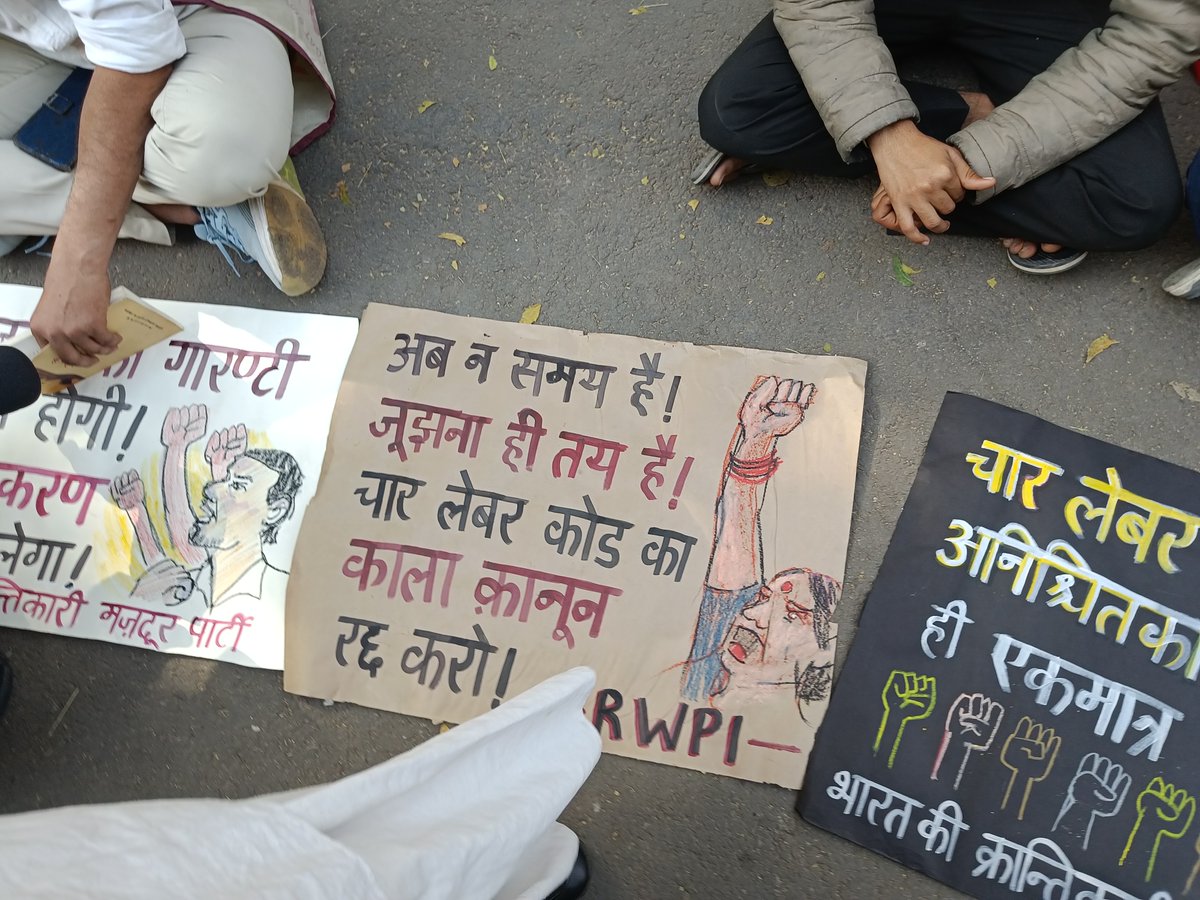 गारण्टी
होगी!
करण
लेगा!
मज़दूर पार्टी
अब न समय है!
जूझना ही तय है!
चार लेबर कोड का
काला क़ानून
रद्द करो!
RWPI—
चार लेबर
अनिश्चितका
ही एकमात्र
भारत की